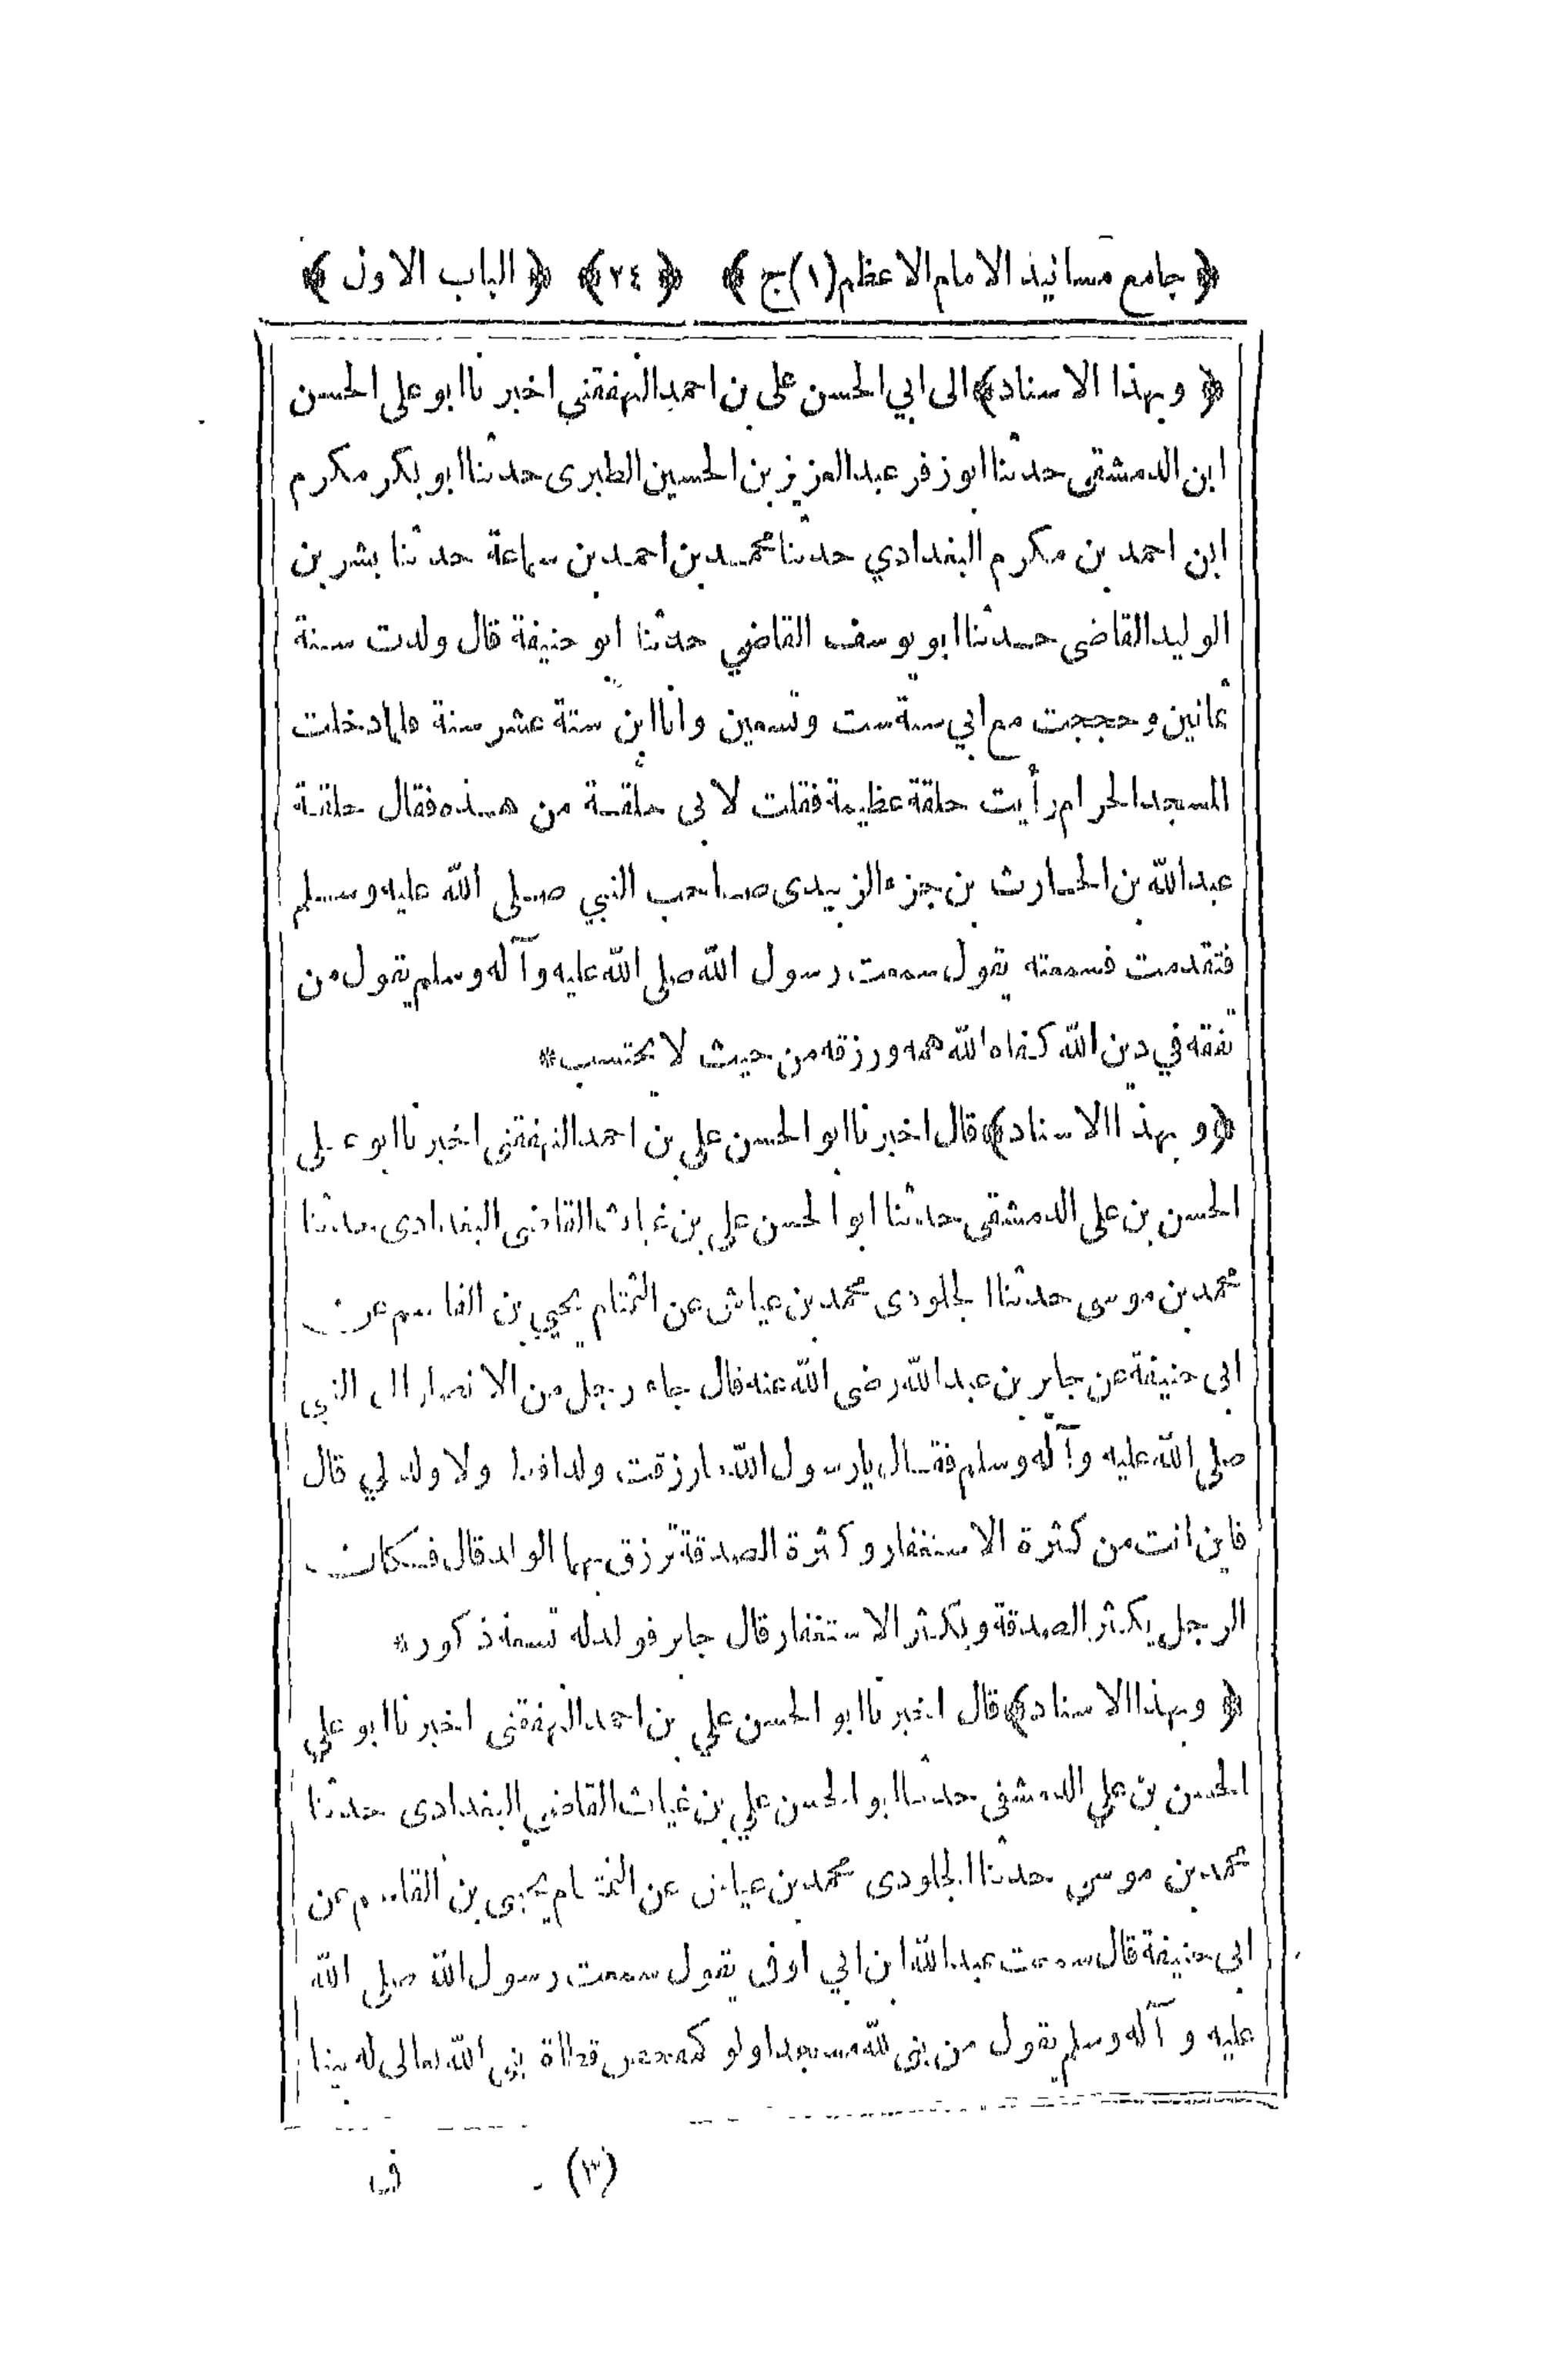 ﴿ جامع مسانيد الامام الاعظم (١) ج ﴾ ﴿ ٢٤ ﴾ ﴿ الباب الاول ﴾
﴿ وبهذا الاسناد ﴾ الى ابي الحسن على بن احمد النهفقنى اخبرنا ابو على الحسن
ابن الدمشقى حدثنا ابو زفر عبدالعزيز بن الحسين الطبرى حدثنا ابو بكر مكرم
ابن احمد بن مكرم البغدادي حدثنا محمد بن احمد بن سماعة حدثنا بشر بن
الوليد القاضى حدثنا ابو يوسف القاضي حدثنا ابو حنيفة قال ولدت سنة
ثمانين وحججت مع ابي سنة ست وتسعين وانا ابن ستة عشر سنة فلما دخلت
المسجد الحرام رأيت حلقة عظيمة فقلت لابى حلقة من هذه فقال حلقة
عبدالله بن الحارث بن جزء الزبيدى صاحب النبي صلى الله عليه وسلم
فتقدمت فسمعته يقول سمعت رسول الله صلى الله عليه وآله وسلم يقول من
تفقه في دين الله كفاه الله همه ورزقه من حيث لا يحتسب *
﴿ وبهذا الاسناد ﴾ قال اخبرنا ابو الحسن علي بن احمد النهفقنى اخبرنا ابو على
الحسن بن على الدمشقى حدثنا ابو الحسن علي بن غياث القاضى البغدادى حدثنا
محمد بن موسى حدثنا الجلودى محمد بن عياش عن التمتام يحيي بن القاسم عن
ابى حنيفة عن جابر بن عبدالله رضى الله عنه قال جاء رجل من الانصار الى النبي
صلى الله عليه وآله وسلم فقال يارسول الله ما رزقت ولدا قط ولا ولد لي قال
فاين انت من كثرة الاستغفار وكثرة الصدقة ترزق بهما الولد قال فكان
الرجل يكثر الصدقة ويكثر الاستغفار قال جابر فولد له تسعة ذكور *
﴿ وبهذا الاسناد ﴾ قال اخبرنا ابو الحسن علي بن احمد النهفقنى اخبرنا ابو علي
الحسن بن علي الدمشقى حدثنا ابو الحسن علي بن غياث القاضي البغدادى حدثنا
محمد بن موسى حدثنا الجلودى محمد بن عياش عن التمتام يحيى بن القاسم عن
ابى حنيفة قال سمعت عبدالله ابن ابي اوفى يقول سمعت رسول الله صلى الله
عليه وآله وسلم يقول من بنى لله مسجدا ولو كمفحص قطاة بنى الله تعالى له بيتا
(٣) فى